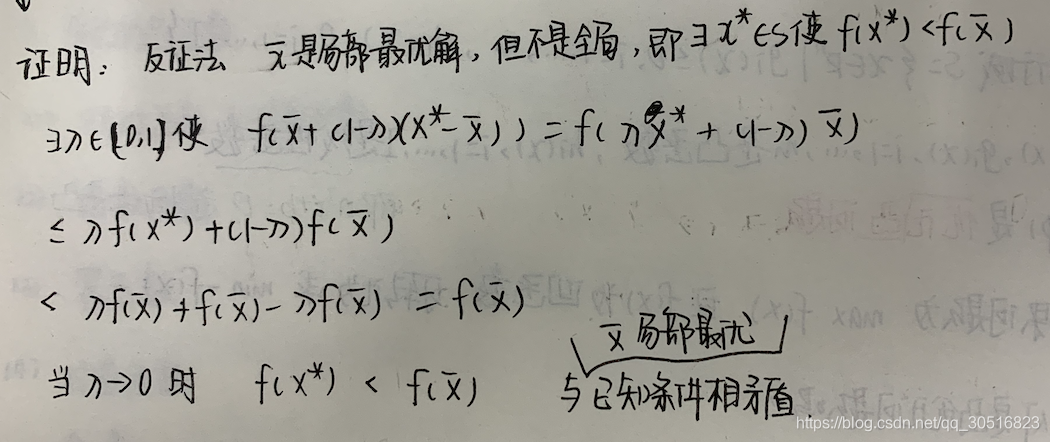 证明: 反证法 x̄是局部最优解, 但不是全局, 即∃x*∈S使 f(x*)<f(x̄)
∃λ∈[0,1]使 f(x̄+(1-λ)(x*-x̄))=f(λx*+(1-λ)x̄)
≤ λf(x*)+(1-λ)f(x̄)
< λf(x̄)+f(x̄)-λf(x̄) = f(x̄)
x̄ 局部最优
当λ→0时 f(x*) < f(x̄) 与已知条件相矛盾.
https://blog.csdn.net/qq_30516823